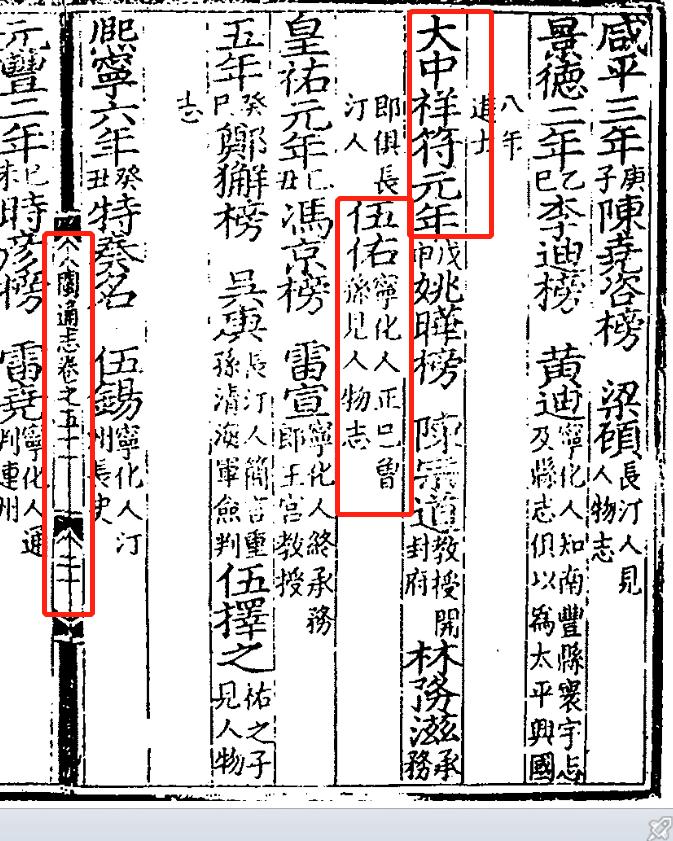 咸平三年庚子陳堯咨榜 梁碩長汀人見人物志
景德二年乙巳李迪榜 黃迪寧化人知南豐縣寰宇志及縣志俱以爲太平興國
八年進士
大中祥符元年戊申姚曄榜 陳宗道教授開封府 林務滋承務
郎俱長汀人 伍佑寧化人正巳曾孫見人物志
皇祐元年己丑馮京榜 雷宣寧化人終承務郎王宮教授
五年癸巳鄭獬榜 吳長汀人簡言重孫清海軍僉判 伍擇之祐之子見人物
志
熙寧六年癸丑特奏名 伍錫寧化人汀州長史
八閩通志卷之五十
元豐二年己未時彥榜 雷堯寧化人通判連州